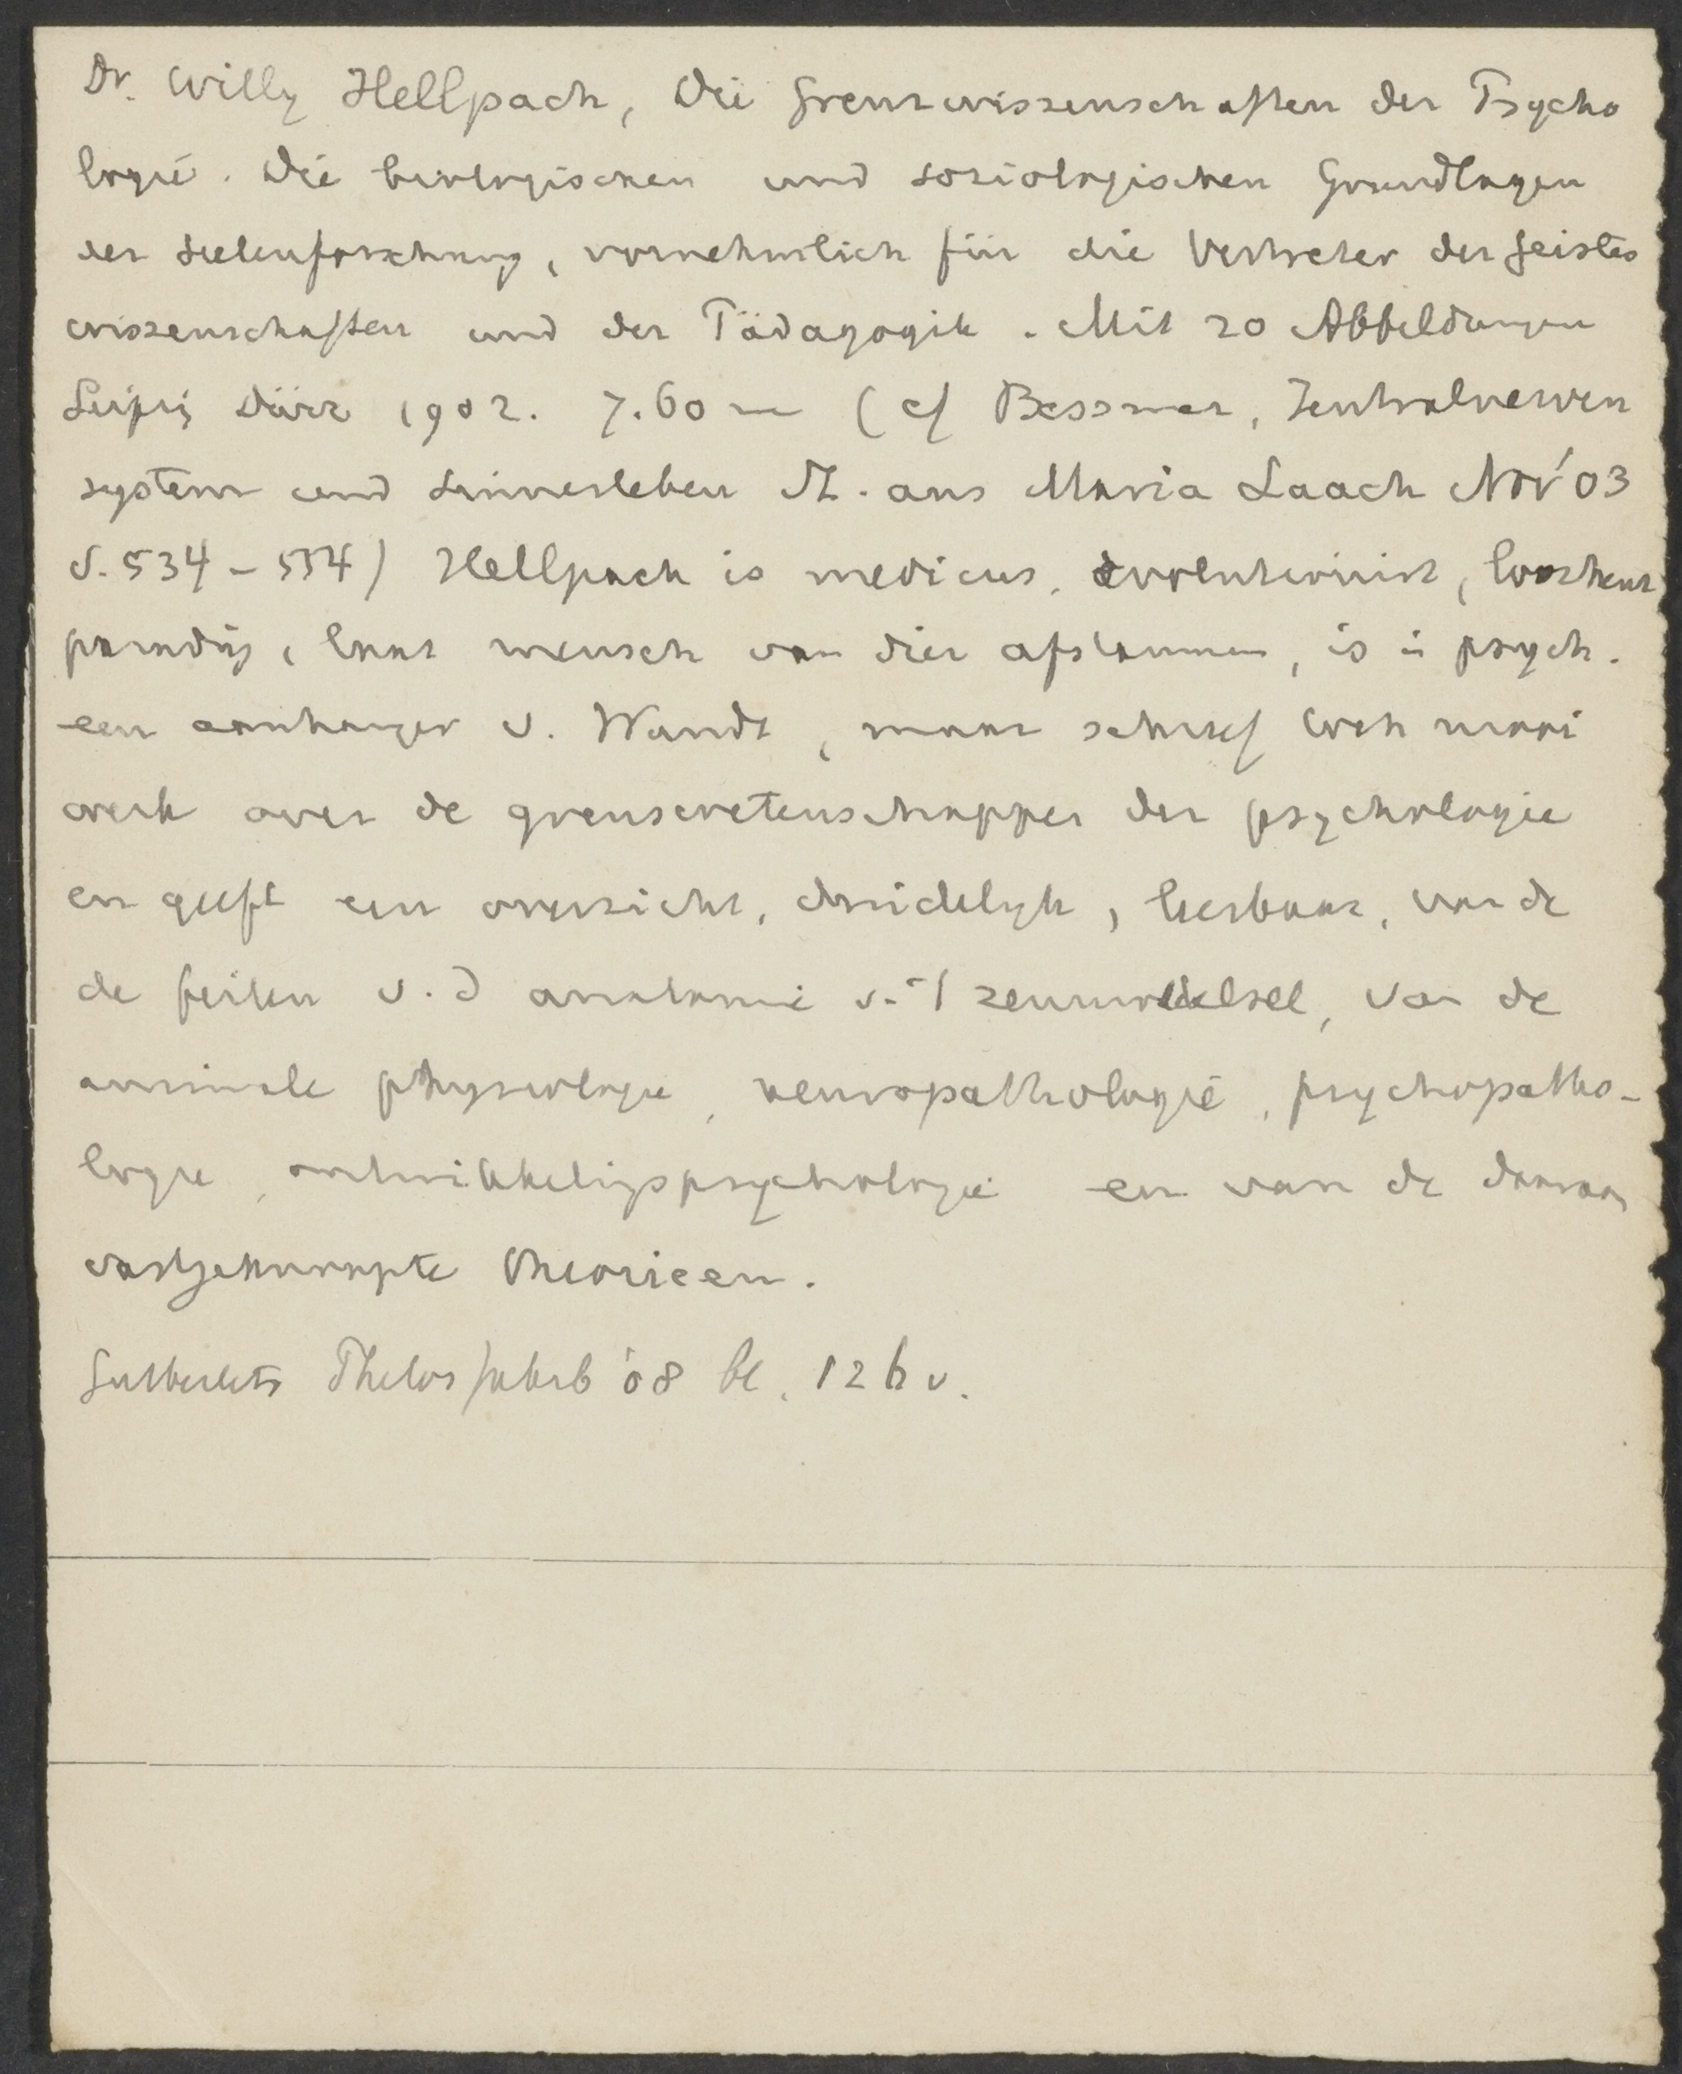 Dr. Willy Hellpach, Die Grenzwissenschaften der Psycho
logie. Die biologischen und soziologischen Grundlagen
der Seelenforschung, vornehmlich für die Vertreter der Geistes
wissenschaften und der Pädagogik. Mit 20 Abbildungen
Leipzig Dürr 1902. 7.60 m (cf Bessmer, Zentralnerven
system und Sinnesleben St. aus Maria Laach Nov '03
S. 534-554) Hellpach is medicus, evolutionist,
laat mensch van dier afstammen, is in psych.
een aanhanger v. Wundt, maar schreef toch mooi
werk over de grenswetenschappen der psychologie
en geeft een overzicht, duidelijk, leesbaar, van de
de feiten v. d anatomie v. 't zenuwstelsel, van de
animale physiologie, neuropathologie, psychopatho-
logie, ontwikkelingspsychologie en van de daaraan
vastgeknoopte theorieen.
Gutberlets Philos Jahrb '08 bl. 126 v.